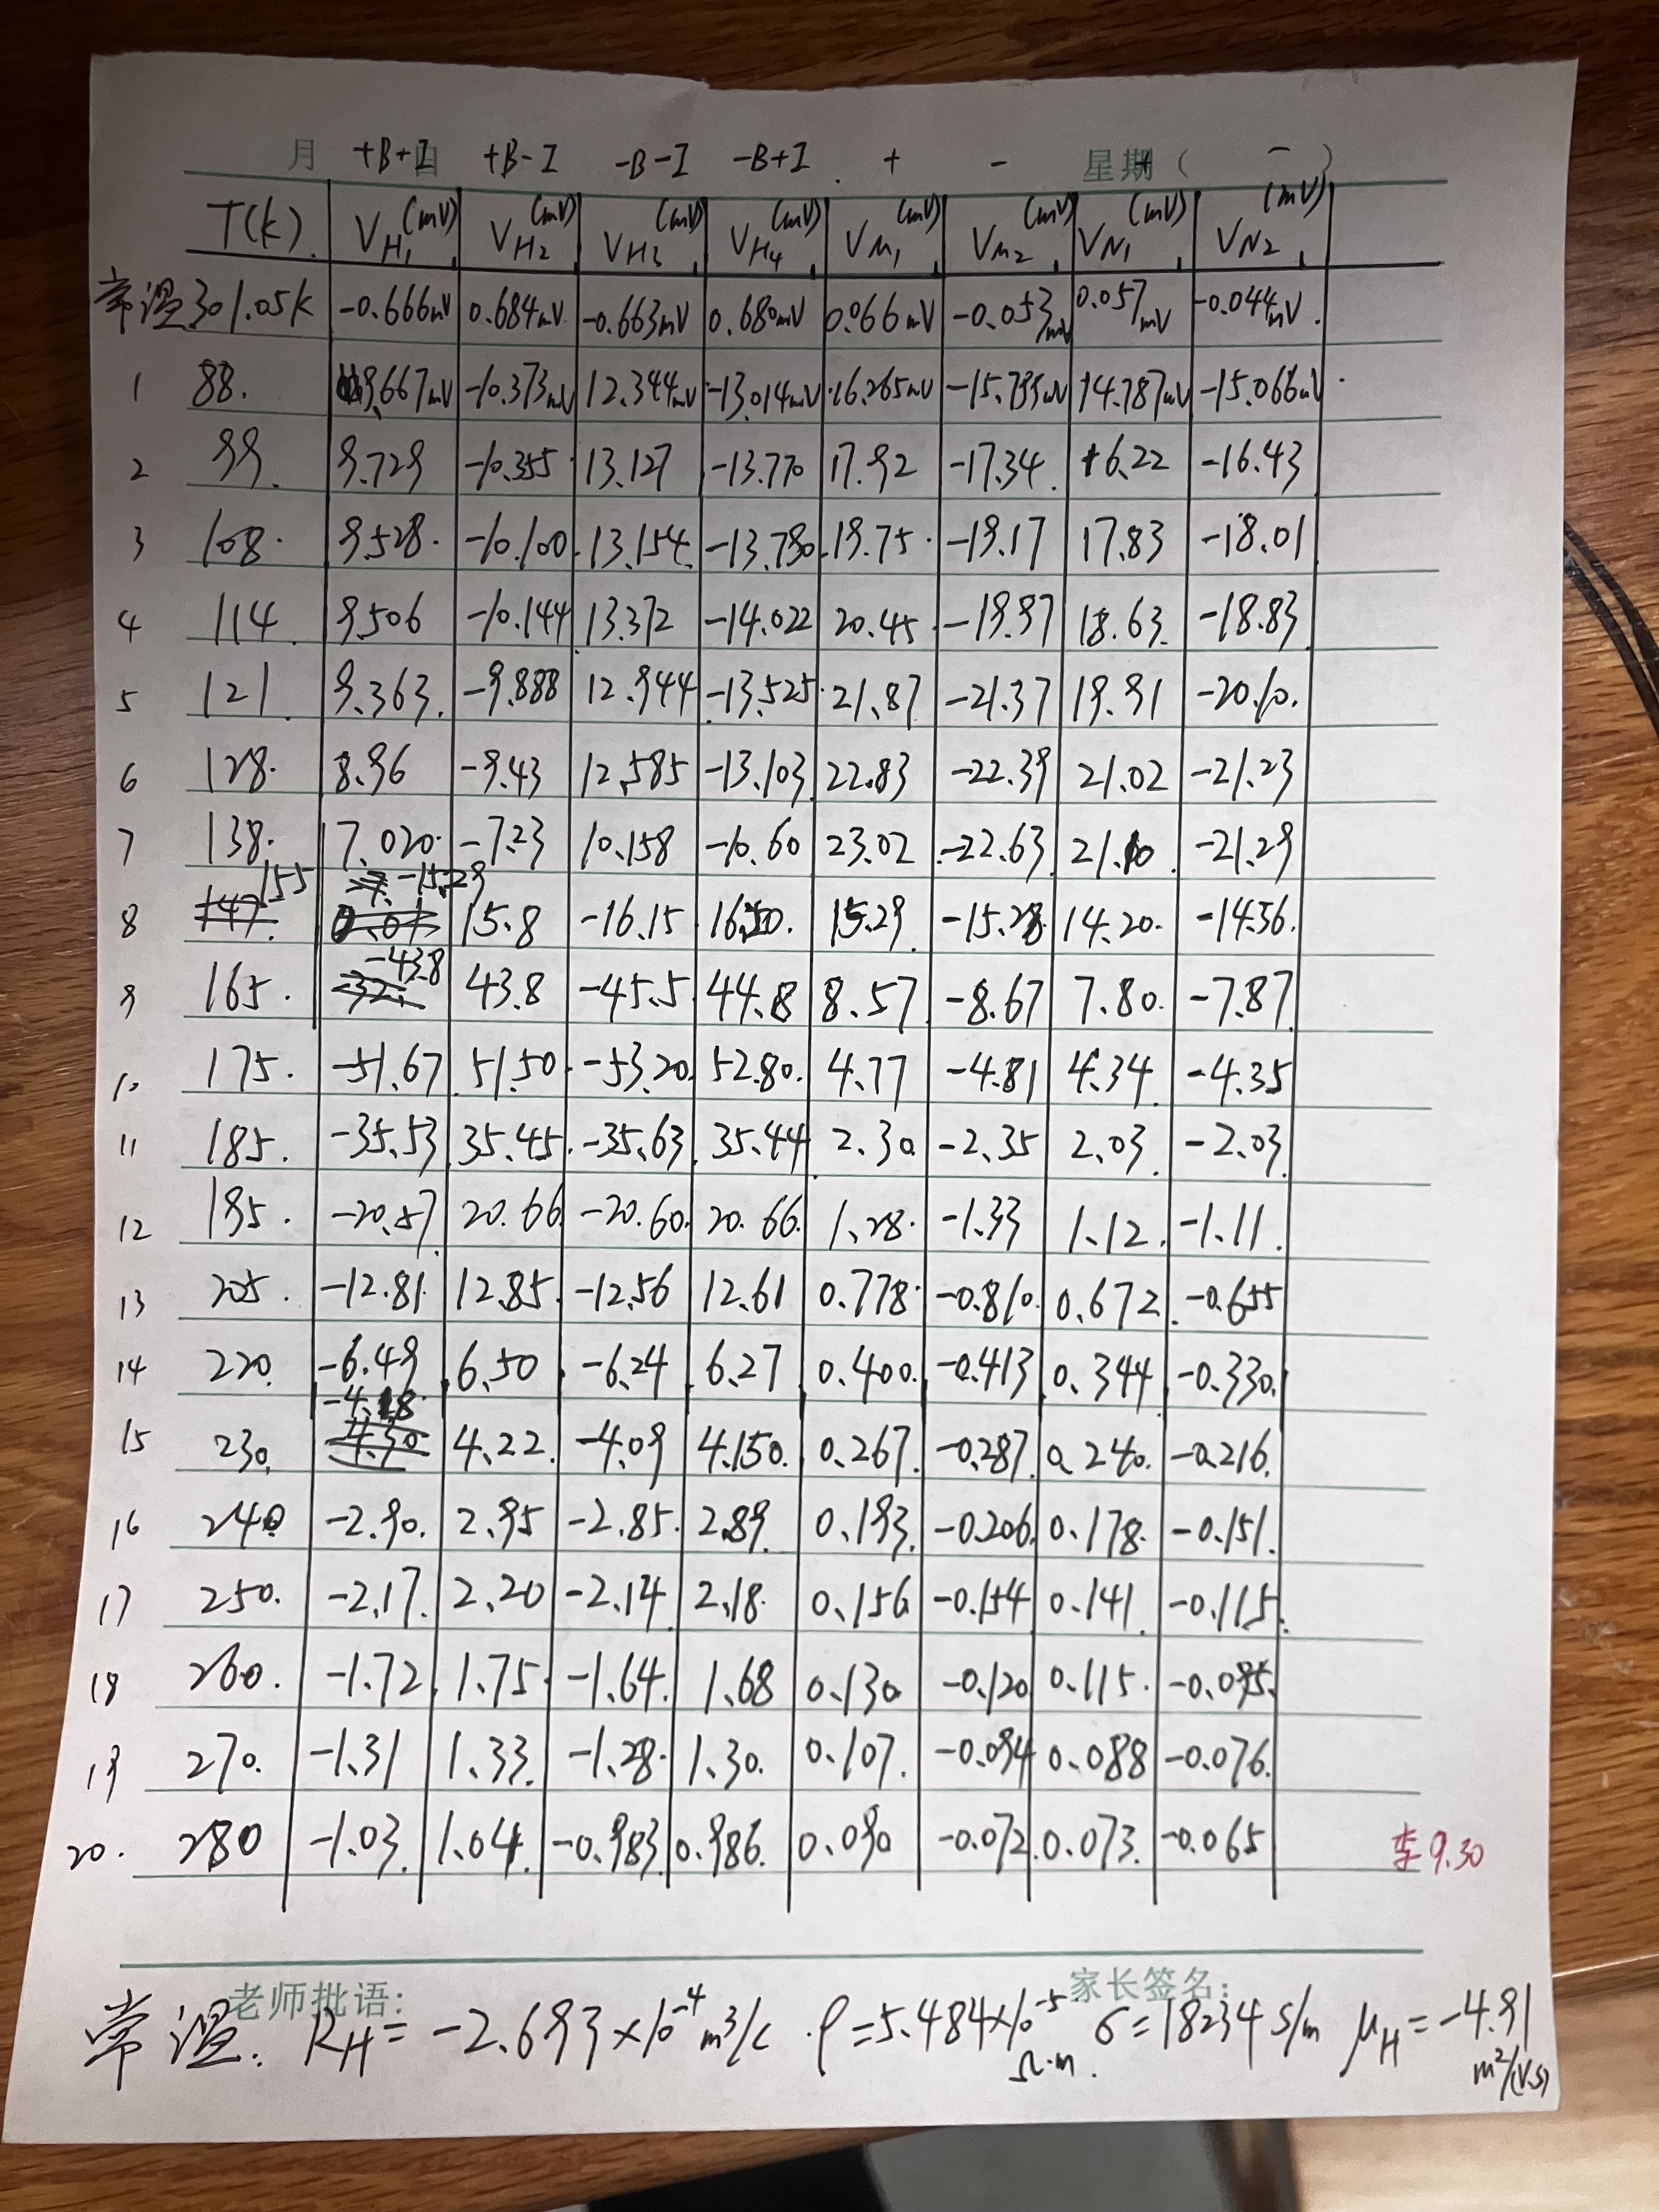 月 日 +B+I +B-I -B-I -B+I + - 星期( + - )
T(K) VH1(mV) VH2(mV) VH3(mV) VH4(mV) VM1(mV) VM2(mV) VN1(mV) VN2(mV)
常温301.05K -0.666mV 0.684mV -0.663mV 0.680mV 0.066mV -0.053mV 0.057mV -0.044mV
1 88. 9.667mV -10.373mV 12.344mV -13.014mV 16.265mV 14.787mV -15.066mV
2 99. 9.729 -10.355 13.127 -13.770 17.92 -17.34 16.22 -16.43
3 108. 9.528 -10.100 13.154 -13.790 19.75 -19.17 17.83 -18.01
4 114 9.506 -10.144 13.372 -14.022 20.45 -19.97 18.63 -18.83
5 121 9.363 -9.888 12.944 -13.525 21.87 -21.37 19.91 -20.10
6 128. 8.96 -9.43 12.585 -13.103 22.83 -22.39 21.02 -21.23
7 138. 7.020 -7.23 10.158 -10.60 23.02 -22.63 21.10 -21.29
8 155 -15.29 15.8 -16.15 16.20 15.29 -15.28 14.20 -14.56
9 165. -43.8 43.8 -45.5 44.8 8.57 -8.67 7.80 -7.87
10 175. -51.67 51.50 -53.20 52.80 4.77 -4.81 4.34 -4.35
11 185. -35.53 35.45 -35.63 35.44 2.30 -2.35 2.03 -2.03
12 195. -20.57 20.66 -20.60 20.66 1.28 -1.33 1.12 -1.11
13 205. -12.81 12.85 -12.56 12.61 0.778 -0.810 0.672 -0.655
14 220. -6.49 6.50 -6.24 6.27 0.400 -0.413 0.344 -0.330
15 230. -4.18 4.22 -4.09 4.150 0.267 -0.287 0.240 -0.216
16 240 -2.90 2.95 -2.85 2.89 0.193 -0.206 0.178 -0.151
17 250. -2.17 2.20 -2.14 2.18 0.156 -0.154 0.141 -0.115
18 260. -1.72 1.75 -1.64 1.68 0.130 -0.120 0.115 -0.095
19 270. -1.31 1.33 -1.28 1.30 0.107 -0.094 0.088 -0.076
20. 280 -1.03 1.04 -0.983 0.986 0.090 -0.072 0.073 -0.065
李9.30
老师批语: 家长签名:
常温: RH=-2.693×10⁻⁴m³/C ρ=5.484×10⁻⁵Ω·m σ=18234 S/m μH=-4.91 m²/(V·s)